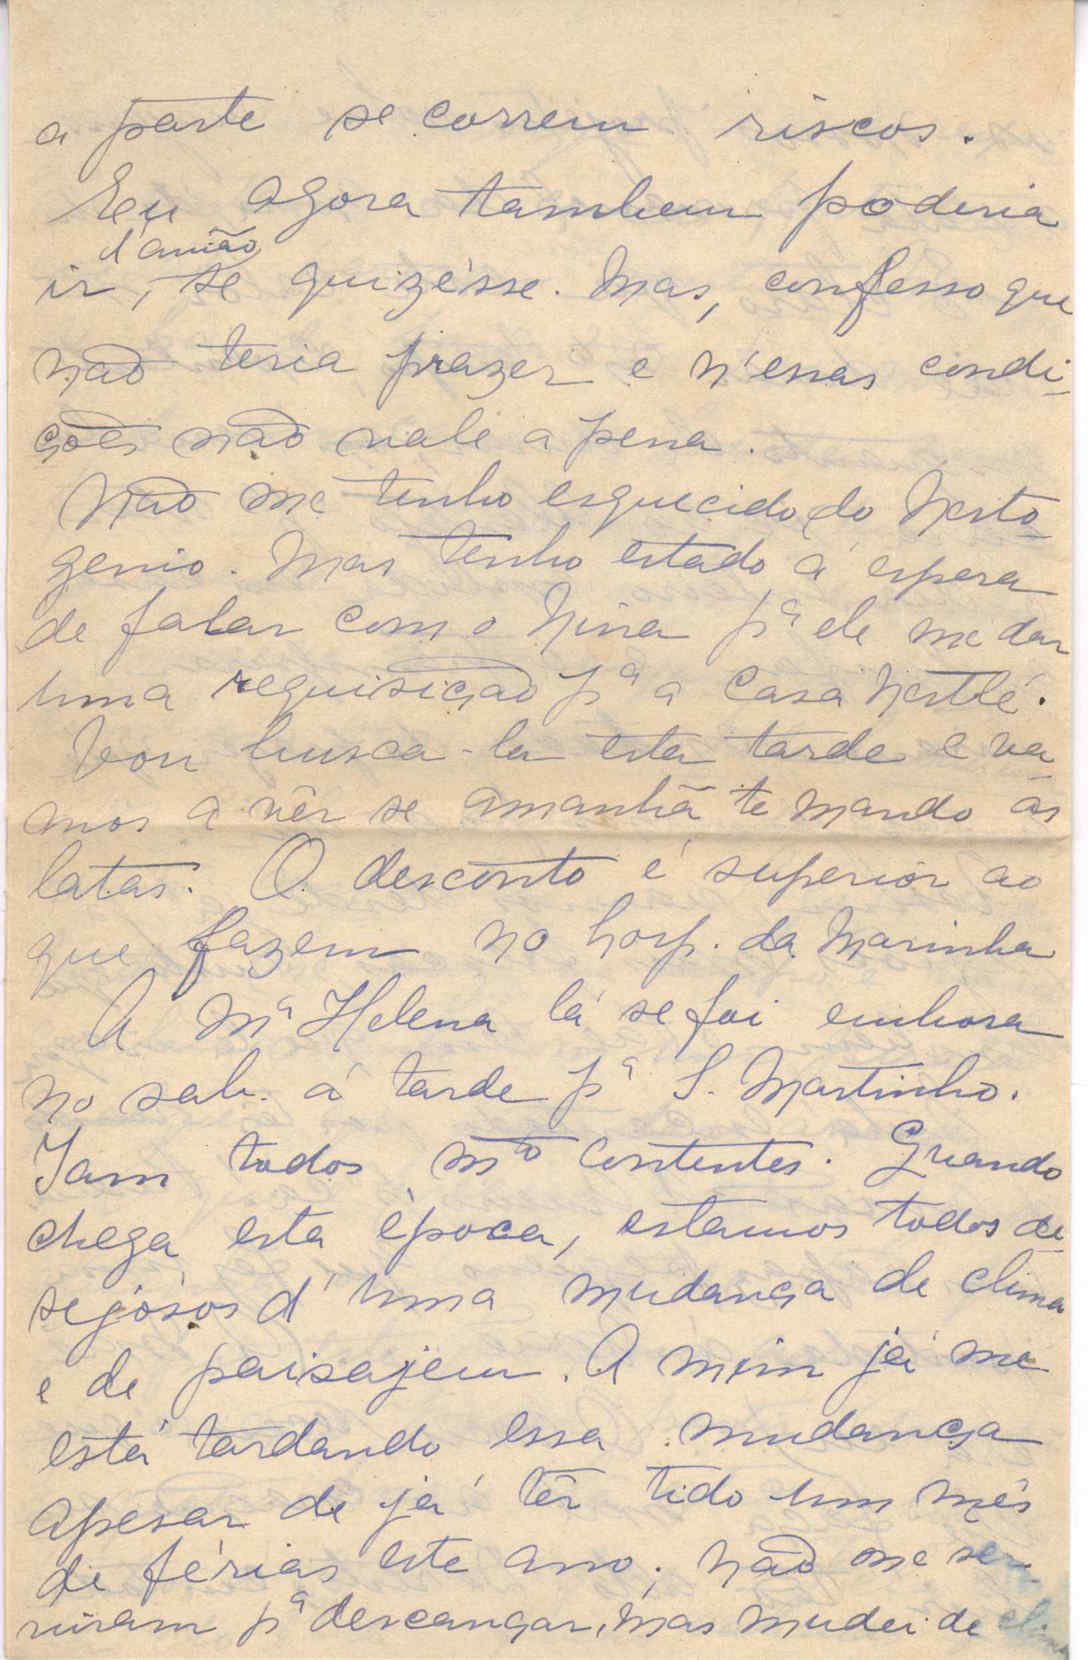 a parte se correm riscos.
Eu agora tambem poderia
d'avião
ir, se quizésse. Mas, confesso que
não teria prazer e n'essas condi-
ções não vale a pena.
Não me tenho esquecido do Nesto-
genio. Mas tenho estado á espera
de falar com o Nina pª ele me dar
uma requisição pª a Casa Nestlé.
Vou busca-la esta tarde e va-
mos a vêr se amanhã te mando as
latas. O desconto é superior ao
que fazem no hosp. da Marinha
A Mª Helena lá se foi embora
no sab. á tarde pª S. Martinho.
Iam todos mto contentes. Quando
chega esta época, estamos todos de-
sejósos d'uma mudança de clima
e de paisajem. A mim já me
está tardando essa mudança
apesar de já têr tido um mês
de férias este ano; não me ser-
viram pª descançar, mas mudei de clima